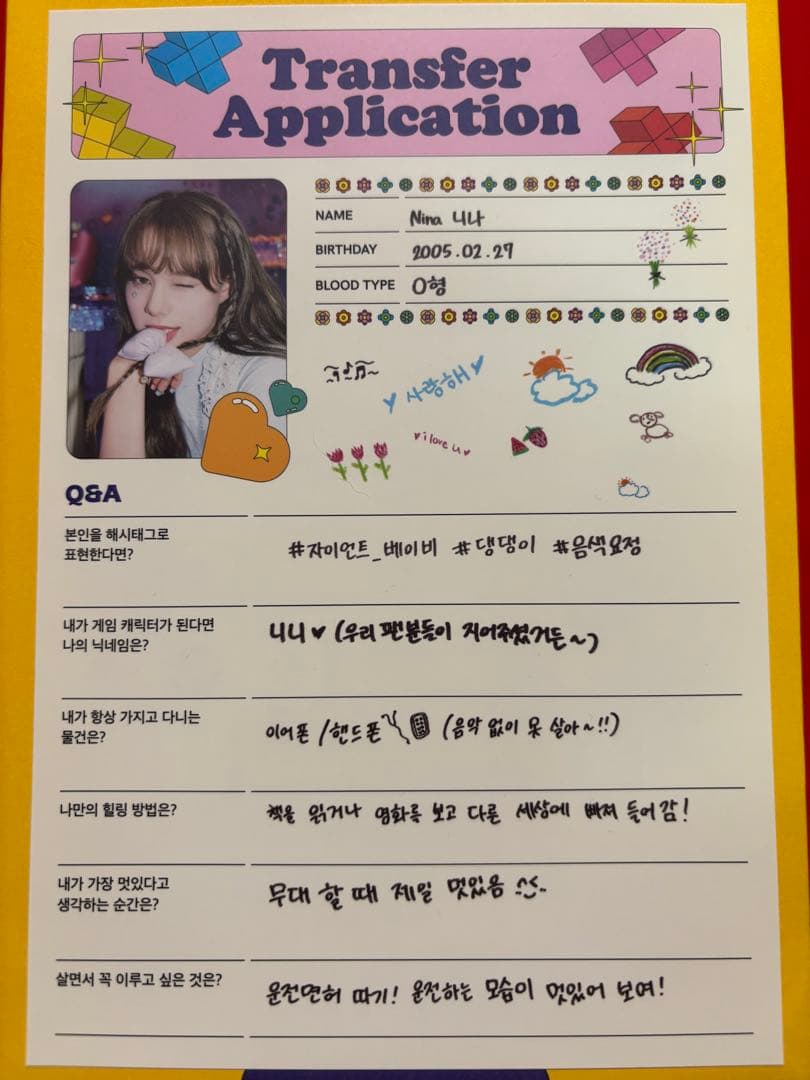 Transfer
Application
NAME Nina 니나
BIRTHDAY 2005.02.27
BLOOD TYPE O형
사랑해
i love u
Q&A
본인을 해시태그로
표현한다면?
#자이언트_베이비 #댕댕이 #음색요정
내가 게임 캐릭터가 된다면
나의 닉네임은?
니니♥ (우리 팬분들이 지어주셨거든~)
내가 항상 가지고 다니는
물건은?
이어폰/핸드폰 (음악 없이 못 살아~!!)
나만의 힐링 방법은?
책을 읽거나 영화를 보고 다른 세상에 빠져 들어감!
내가 가장 멋있다고
생각하는 순간은?
무대 할 때 제일 멋있음
살면서 꼭 이루고 싶은 것은?
운전면허 따기! 운전하는 모습이 멋있어 보여!